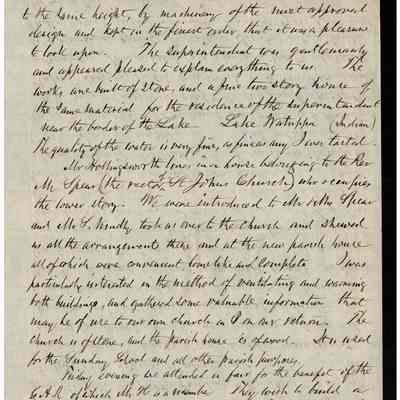 to the same height, by machinery of the most approved
design and kept in the finest order, that it was a pleasure
to look upon. The superintendent was gentlemanly
and appeared pleased to explain everything to us. The
works are built of stone, and a fine two story house of
the same material for the residence of the superintendent
near the border of the Lake. Lake Watuppa (Indian)
The quality of the water is very fine, as fine as any I ever tasted.
Mr Hollingsworth lives in a house belonging to the Rev
Mr Spear (the rector of St Johns Church) who occupies
the lower story. We were introduced to Mr & Mrs Spear
and Mr S. kindly took us over to the church and shewed
us all the arrangements there and at the new parish house
all of which were convenient homelike and complete I was
particularly interested in the method of ventilating and warming
both buildings, and gathered some valuable information that
may be of use to our own church in on our return. The
church is of stone, and the parish house is of wood. It is used
for the Sunday School and all other parish purposes.
Friday evening we attended a fair for the benefit of the
G.A.R. of which Mr H is a member They wish to build a